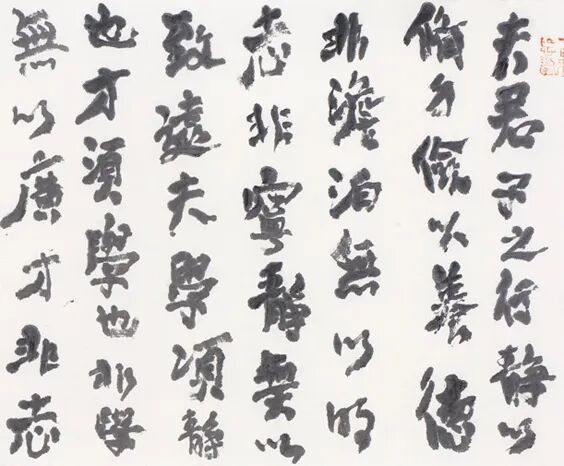 夫君子之行靜以
脩身儉以養德
非澹泊無以明
志非寧靜無以
致遠夫學須靜
也才須學也非學
無以廣才非志